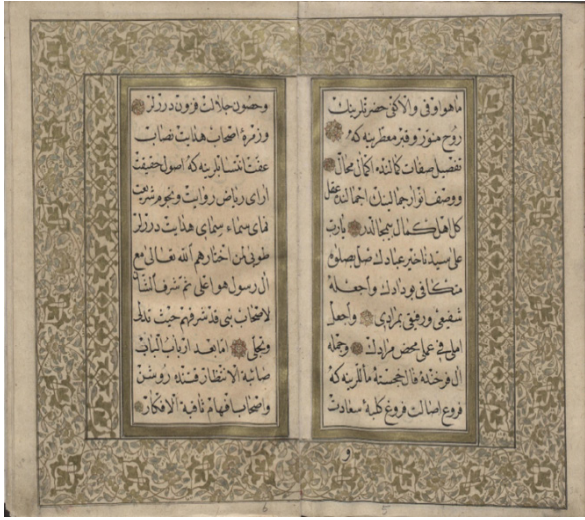 ماهو اوفى والاكفى حضرتلرينك
روح منور وقبر معطرينه كه
تفصيل صفات كمالنده اكمال محال
ووصف انوار جمالينك اجمالنده عقل
كل اهل كمال بيمجالدر يارب
على سيدنا خير عبادك صل بصلوة
منك كافى بودادك واجعله
شفيعى ورفيقى بمرادى واجعل
املى فى عملى محض مرادك وجمله
ال فرخنده فال خجسته مآللرينه كه
فروع اصالت فروغ كلبۀ سعادت
و
5
وحصون جلالت درلر
وزمرۀ اصحاب هدايت نصاب
عفت انتسابلرينه كه اصول حقيقت
اراى رياض روايت ونجوم شريعت
نماى سماء سيماى هدايت درلر
طوبى لمن اختارهم الله تعالى مع
ال رسول هو اعلى ثم شرف الشان
لاصحاب نبى قد شرفهم حيث تدلى
وتجلى اما بعد ارباب الباب
صائبة الانظار قتنده روشن
واصحاب افهام ثاقبة الافكار
6